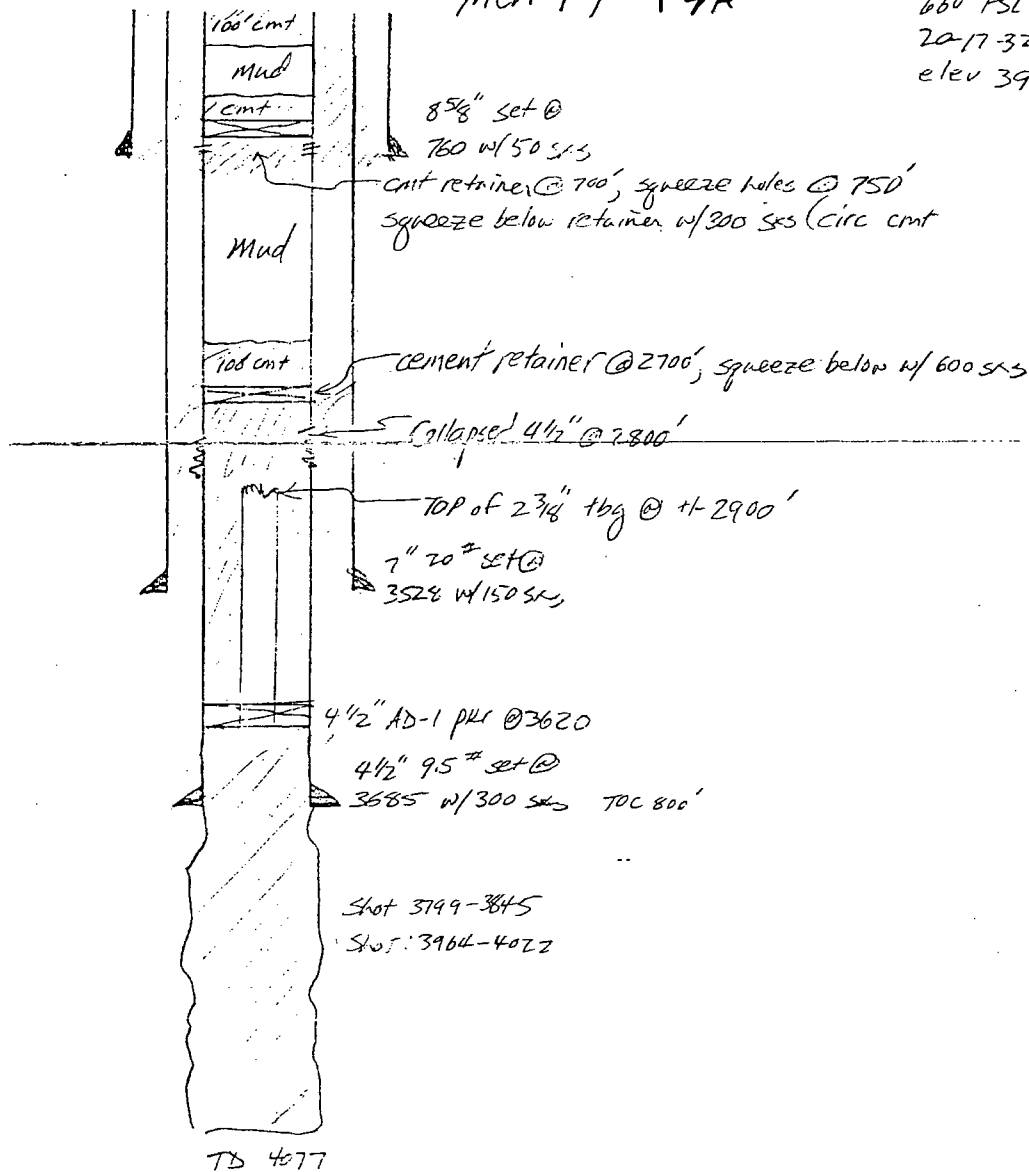 660 FSL
20-17-32
elev 39
100' cmt
Mud
cmt
8 5/8" set @
760 w/50 sxs
cmt retainer @ 700', squeeze holes @ 750'
squeeze below retainer w/300 sxs (circ cmt
Mud
100 cmt
cement retainer @ 2700', squeeze below w/ 600 sxs
Collapsed 4 1/2" @ 2800'
TOP of 2 3/8" tbg @ +/- 2900'
7" 20# set @
3528 w/150 sxs
4 1/2" AD-1 pkr @3620
4 1/2" 9.5# set @
3685 w/300 sxs TOC 800'
Shot 3799-3845
Shot: 3964-4022
TD 4077